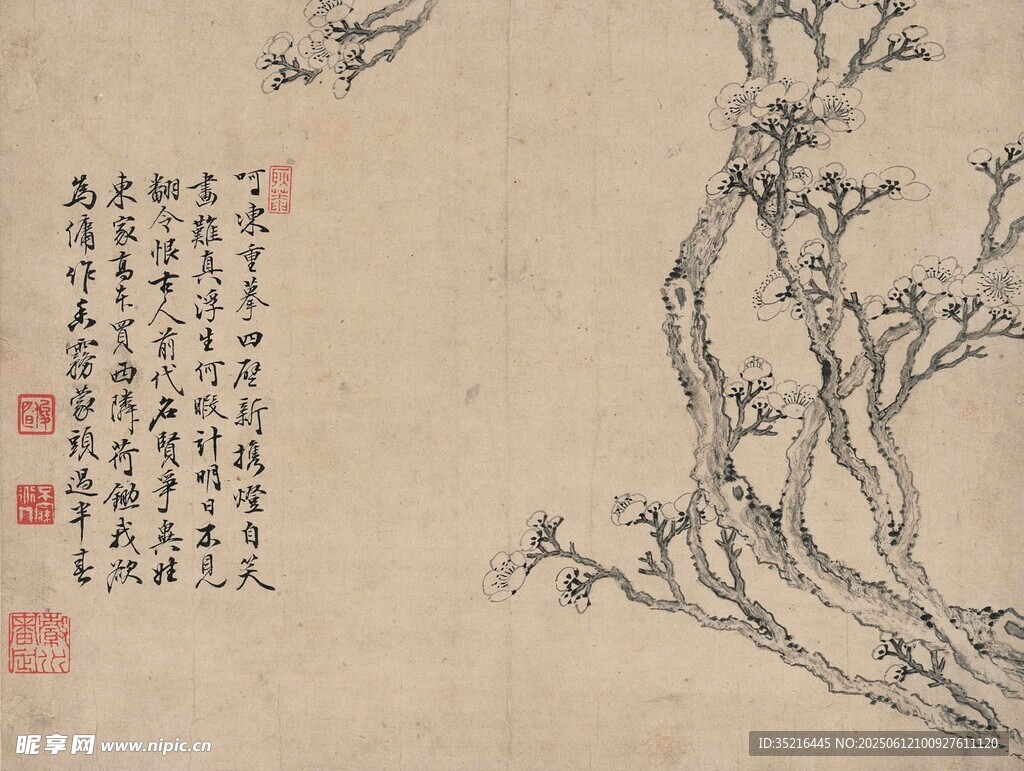 呵凍重摹四壁新携燈自笑
畫難真浮生何暇計明日不見
翻令恨古人前代名賢爭與娃
東家高車買西隣荷鋤我欲
為傭作香霧蒙頭過半春
昵享网 www.nipic.cn
ID:35216445 NO:20250612100927611120